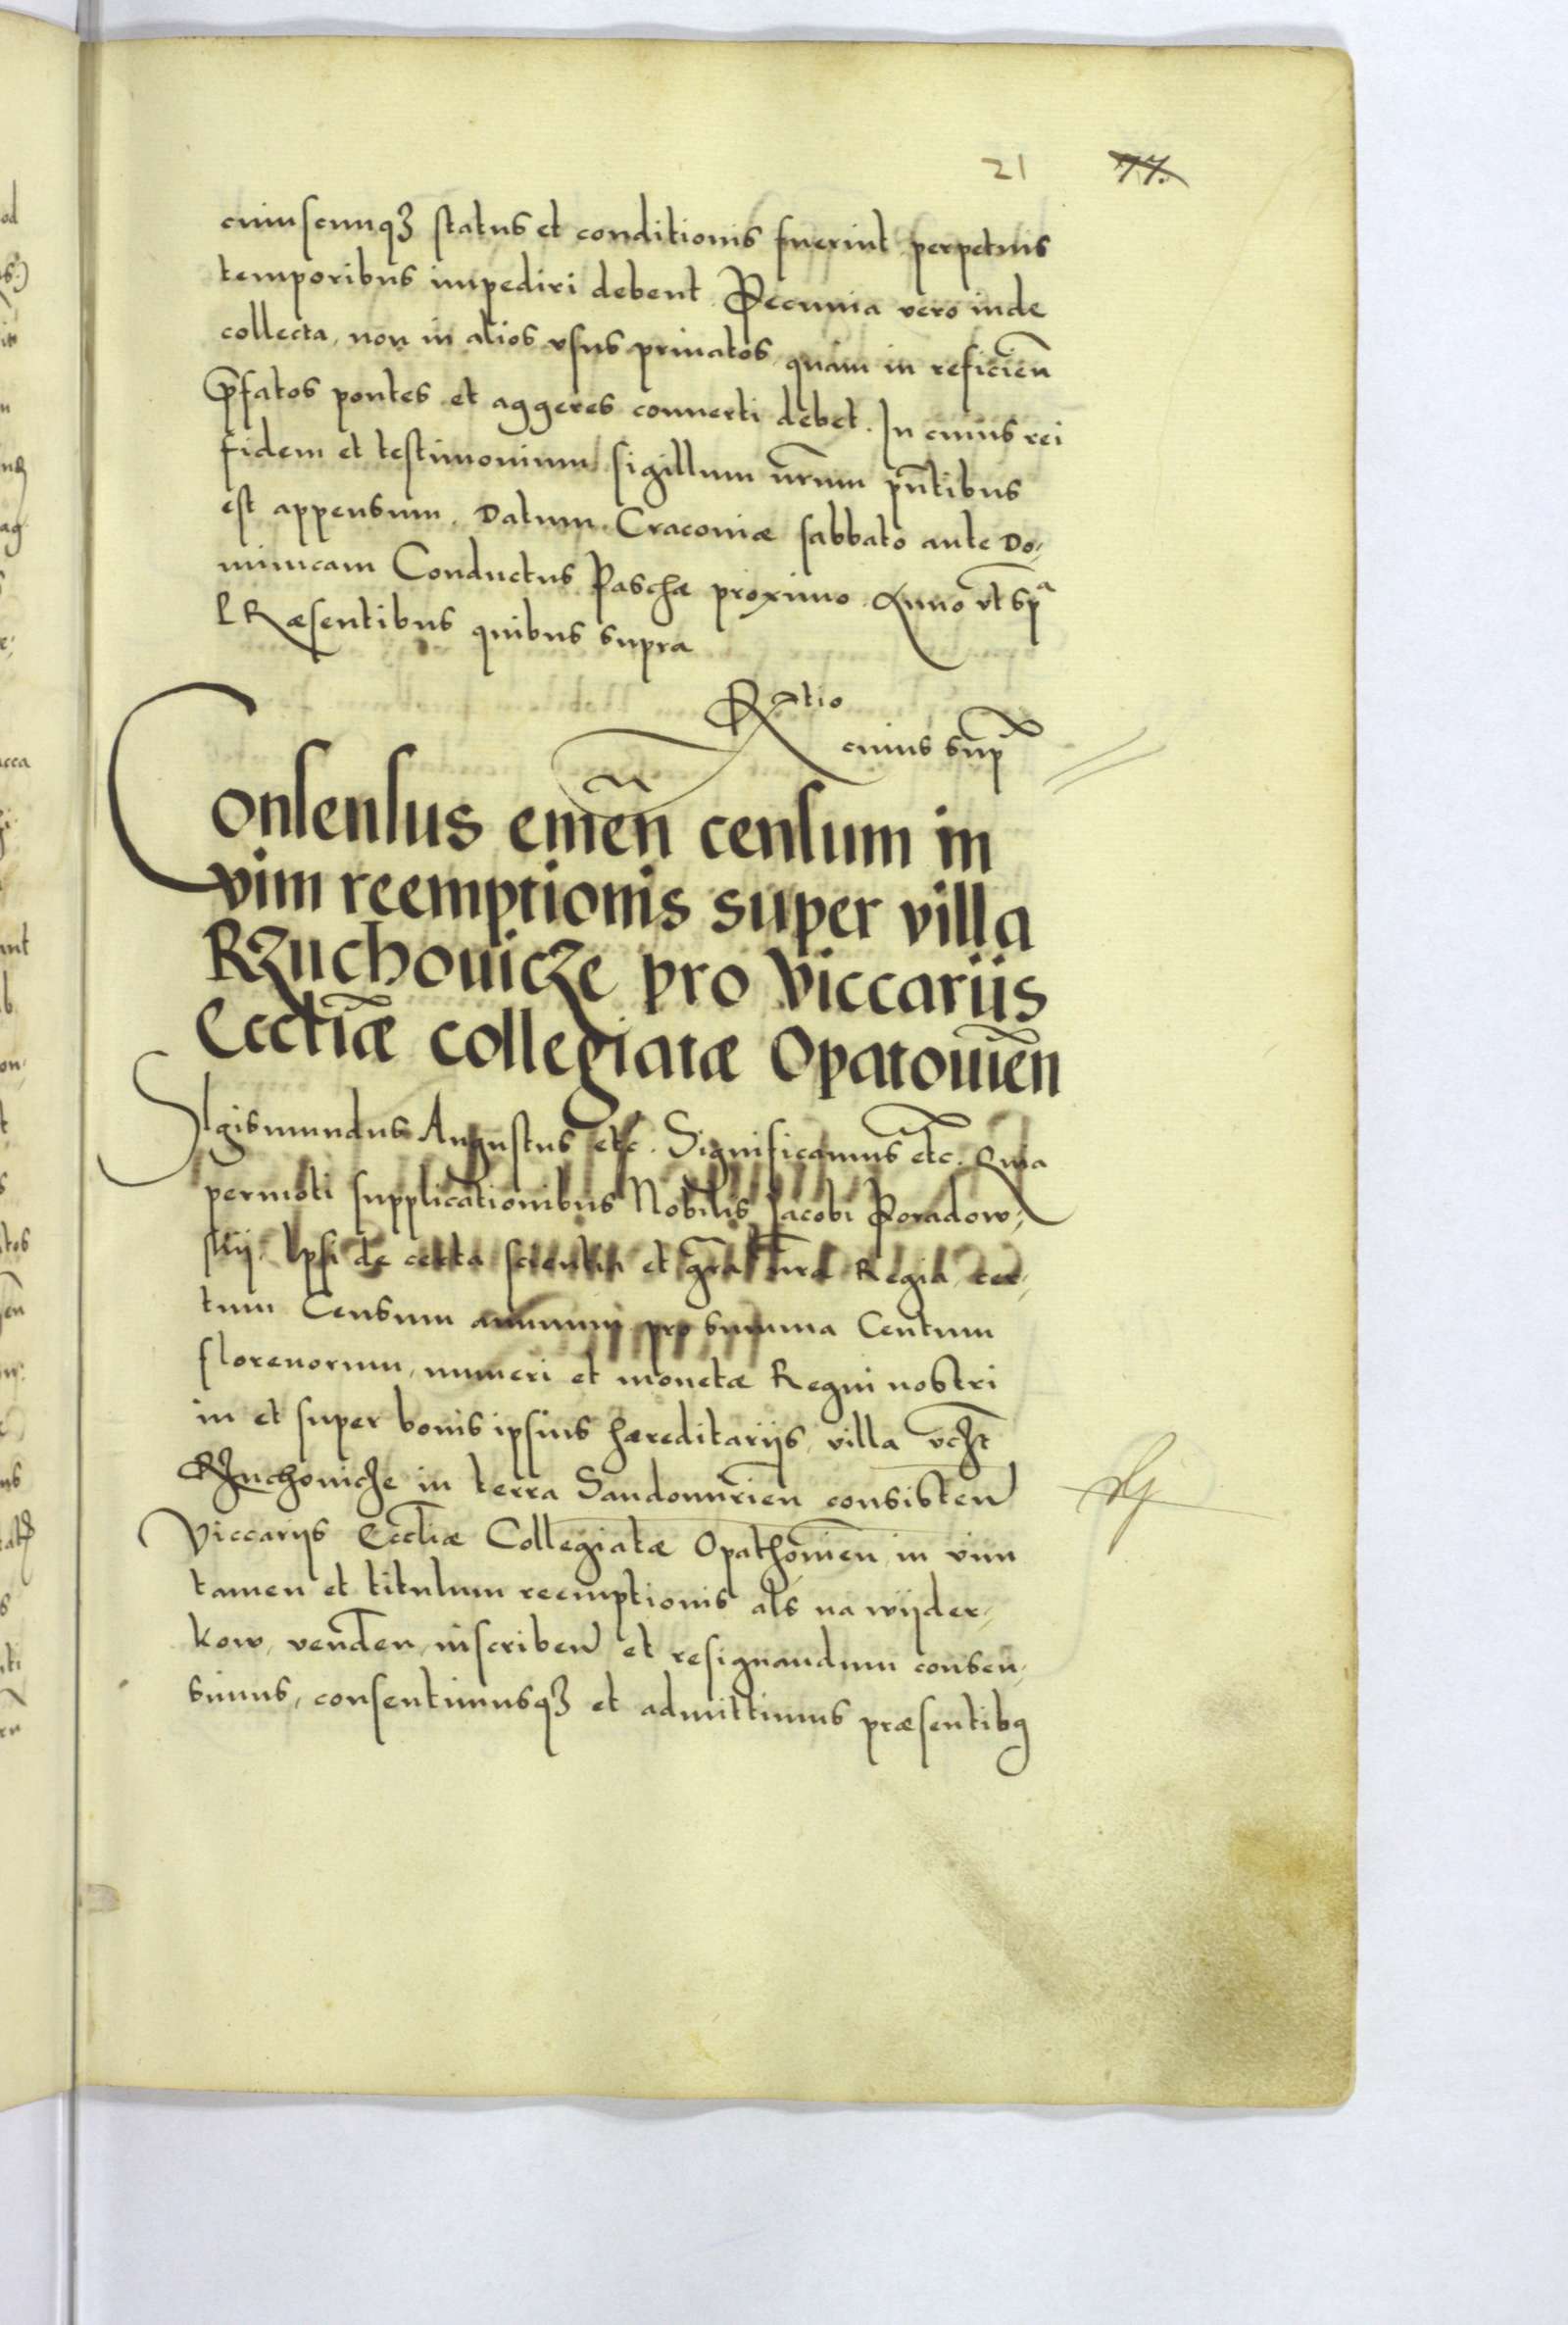 21 77.
cuiuscunqꝫ status et conditionis fuerint perpetuis
temporibus impediri debent Pecunia vero inde
collecta, non in alios vsus priuatos quam in reficien̄
p̄fatos pontes et aggeres conuerti debet. In cuius rei
fidem et testimonium sigillum nr̄um pn̄tibus
est appensum. Datum Cracouiæ sabbato ante Do-
minicam Conductus Paschæ proximo Anno vt spᵃ
PRæsentibus quibus supra
R̄tio
cuius sup̄
Consensus emen̄ censum in
vim reemptionis super villa
Rzuchouicze pro viccariis
Eccl̄iæ collegiatæ Opatouien̄
SIgismundus Augustus etc. Significamus etc. Quia
permoti supplicationibus Nobilis Jacobi Poradow-
skij. Ipsi de certa scientia et gr̄a nr̄a Regia cer-
tum Censum annuum pro summa Centum
florenorum, numeri et monetæ Regni nostri
in et super bonis ipsius hæreditarijs, villa vczt̄
Rzuchouicze in terra Sandomirien̄ consisten̄
Viccarijs Eccl̄iæ Collegiatæ Opathouien̄ in vim
tamen et titulum reemptionis als̄ na wijder-
kow, venden̄, inscriben̄ et resignandum consen-
simus, consentimusqꝫ et admittimus præsentibꝯ